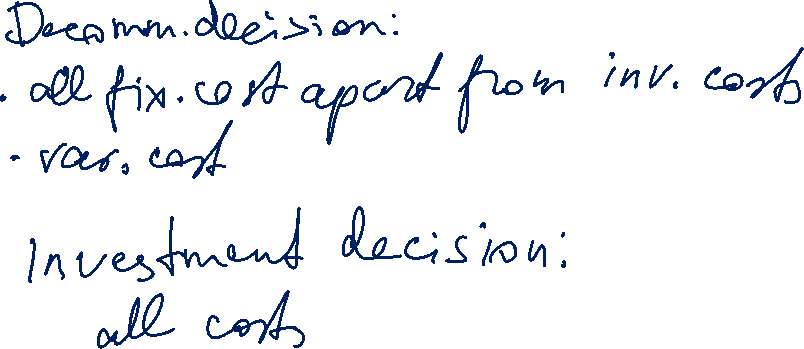 Decomm. decision:
· all fix. cost apart from inv. costs
· var. cost
Investment decision:
all costs